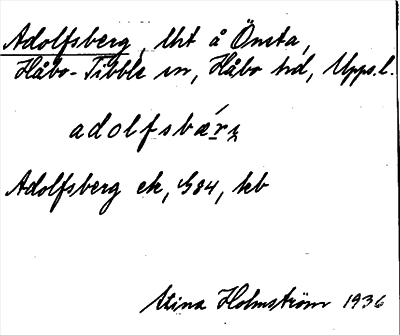 Adolfsberg, lht å Önsta,
Håbo-Tibble sn, Håbo hd, Upps.l.
adolfsbærʒ
Adolfsberg ek, G84, kb
Stina Holmström 1936